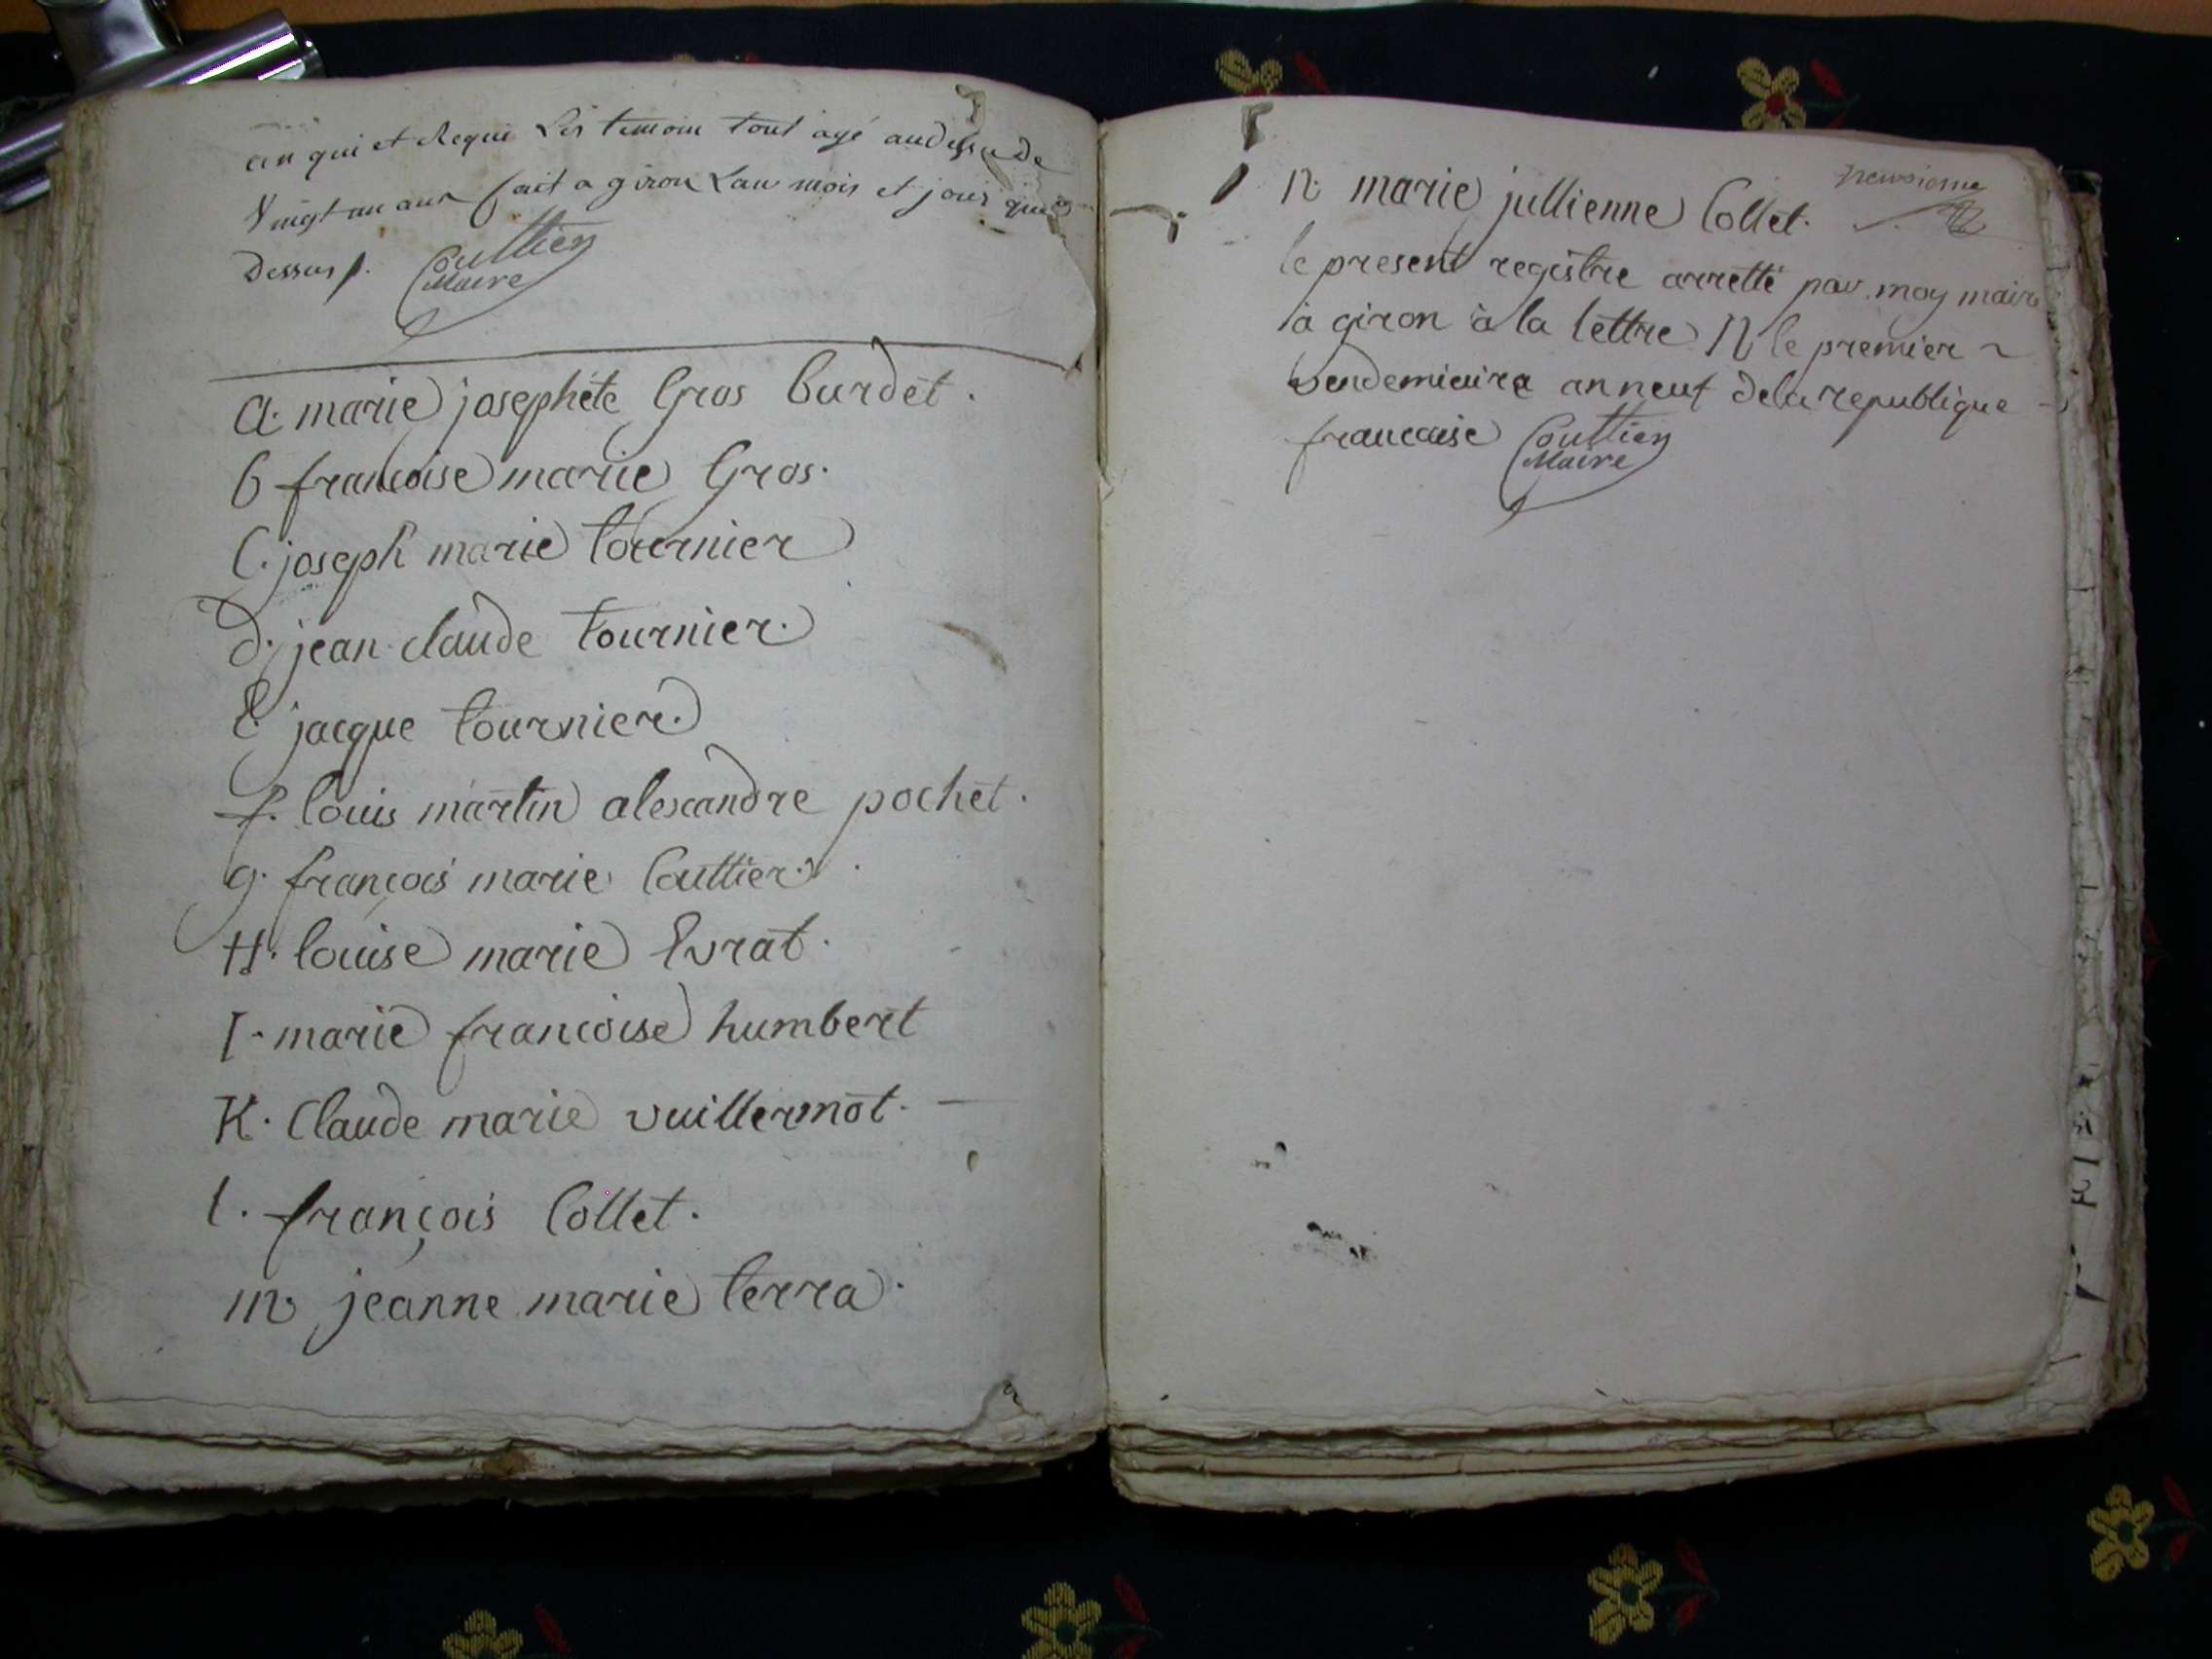 en qui et Requi Les temoin tout agé audessu de
Vingt un ans fait a giron Lan mois et jour que
Dessus
Couttier
Maire
A. marie josephéte Gros burdet.
B françoise marie Gros.
C. joseph marie tournier
D. jean claude tournier.
E. jacque tournier.
f. louis martin alexandre pochet.
g. françois marie Couttier.
H. louise marie Evrat.
I. marie francoise humbert
K. Claude marie vuillermot.
l. françois Collet.
m. jeanne marie terra.
N. marie jullienne Collet.
le present registre arretté par moy maire
à giron à la lettre N le premier
vendemiaire an neuf de la republique
francaise Couttier
Maire